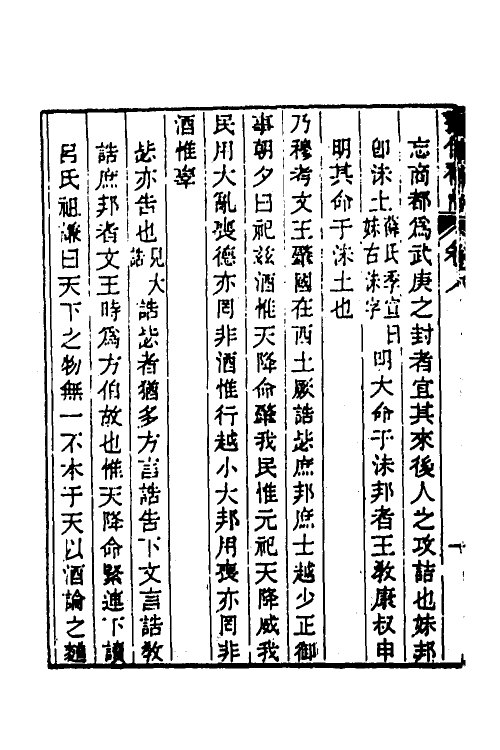 忘商都為武庚之封者宜其來後人之攻詰也妹邦
卽沬土薛氏季宣曰妹古沬字明大命于沬邦者王教康叔申
明其命于沬土也
乃穆考文王肇國在西土厥誥毖庶邦庶士越少正御
事朝夕曰祀茲酒惟天降命肇我民惟元祀天降威我
民用大亂喪德亦罔非酒惟行越小大邦用喪亦罔非
酒惟辜
毖亦告也見大誥誥毖者猶多方言誥告下文言誥教
誥庶邦者文王時為方伯故也惟天降命緊連下讀
呂氏祖謙曰天下之物無一不本于天以酒論之麴